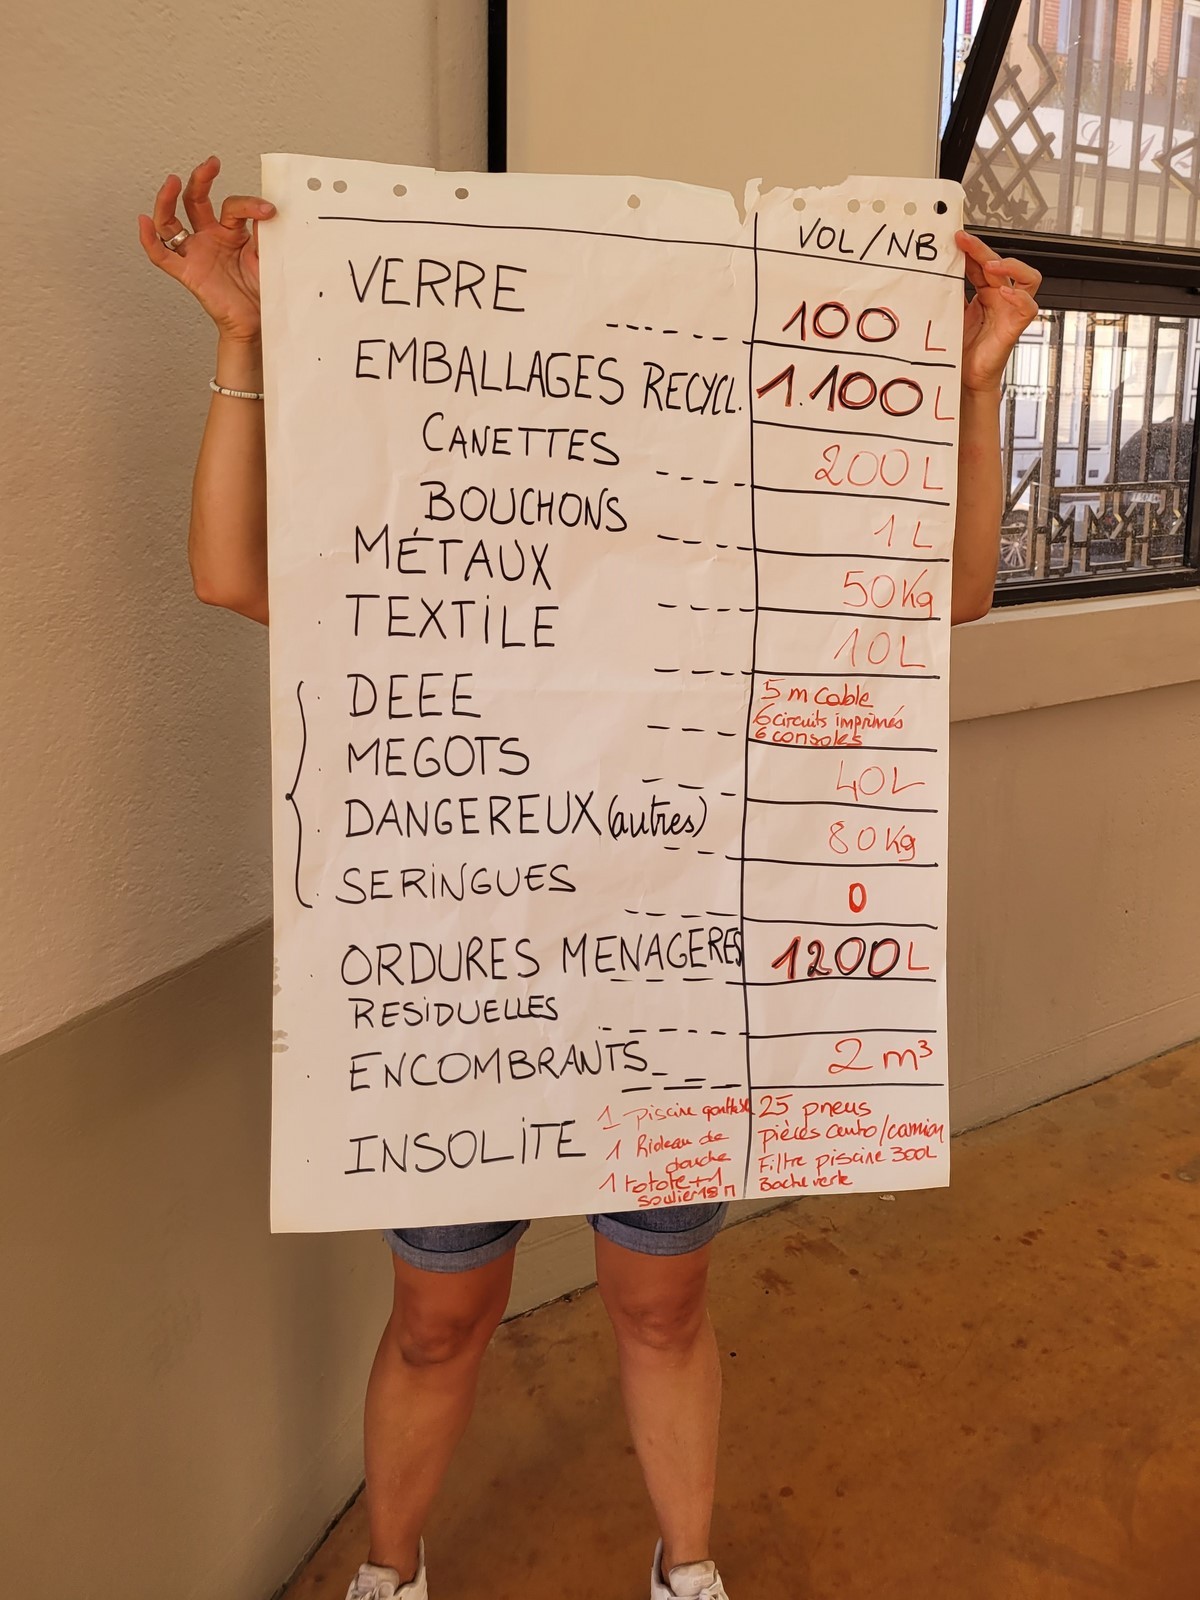 VOL/NB
VERRE 100 L
EMBALLAGES RECYCL. 1.100 L
CANETTES 200 L
BOUCHONS 1 L
MÉTAUX 50 Kg
TEXTILE 10 L
DEEE 5 m cable
6 circuits imprimés
6 consoles
MEGOTS 40 L
DANGEREUX (autres) 80 Kg
SERINGUES 0
ORDURES MENAGERES 1200 L
RESIDUELLES
ENCOMBRANTS 2 m³
INSOLITE
1 piscine
1 Rideau de
douche
1 totote + 1
soulier 18 m
25 pneus
pièces auto/camion
Filtre piscine 300L
Bache verte